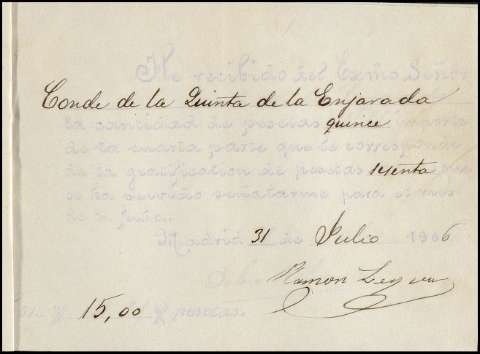 He recibido del Exmo Señor
Conde de la Quinta de la Enjarada
la cantidad de pesetas quince importe
de la cuarta parte que le corresponde
de la gratificación de pesetas sesenta que
se ha servido señalarme para el mes
de la fecha.
Madrid 31 de Julio 1906
Ramon Leyva
15,00 pesetas.